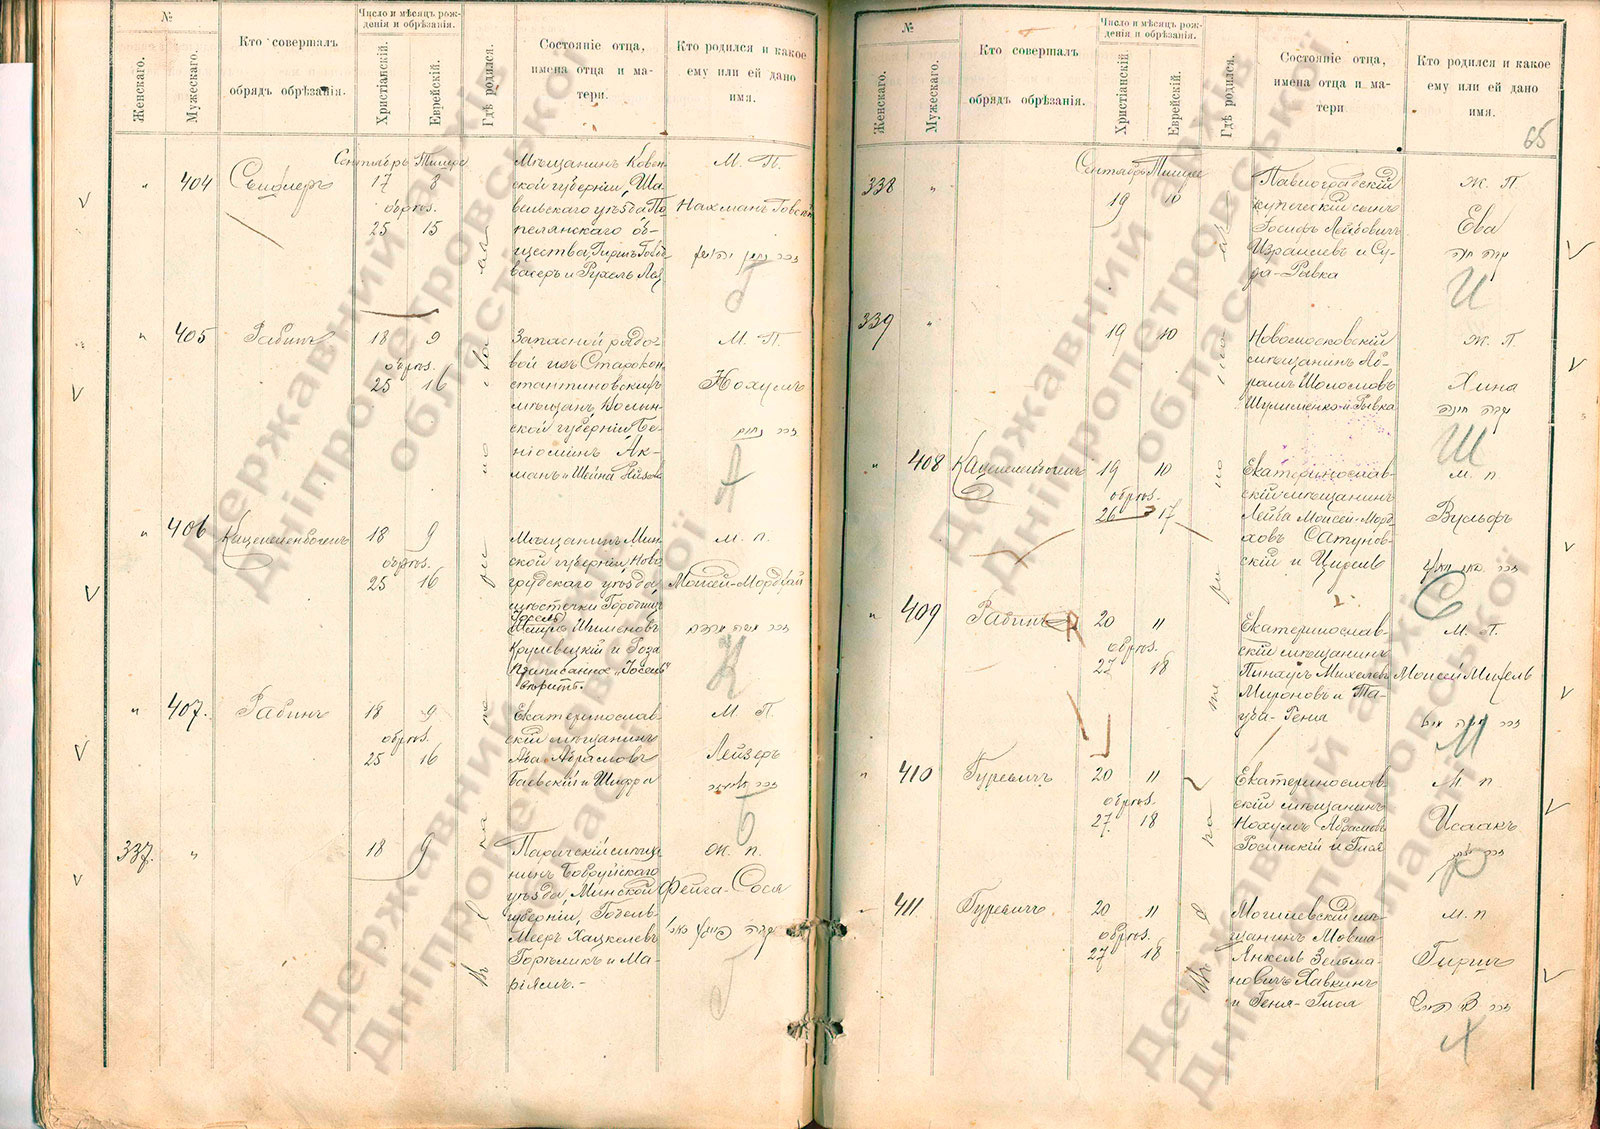 №
Женскаго.
Мужескаго.
Кто совершалъ
обрядъ обрѣзанія.
Число и мѣсяцъ рож-
денія и обрѣзанія.
Христіанскій.
Еврейскій.
Гдѣ родился.
Состояніе отца,
имена отца и ма-
тери.
Кто родился и какое
ему или ей дано
имя.
Сентябрь Тишре
" 404
17 8
обрѣз.
25 15
Мѣщанинъ Ковен-
ской губерніи, Ша-
вельскаго уѣзда По-
пелянскаго об-
щества, Гиршъ
и Рухель
М. П.
Нахманъ
" 405 Рабинъ
18 9
обрѣз.
25 16
Запасной рядо-
вой изъ Старокон-
стантиновскихъ
мѣщанъ, Волын-
ской губерніи, Бе-
ніоминъ Ак-
манъ и Шейна
М. П.
Нохумъ
זכר נחום
" 406 Каценеленбогенъ
18 9
обрѣз.
25 16
Мѣщанинъ Мин-
ской губерніи, Ново-
грудскаго уѣзда,
мѣстечки Городищ
Іосель
Шименовъ
и Роза
Приписанное „Іосель"
вѣрить.
М. П.
Моисей-Мордхай
זכר משה מרדכי
" 407. Рабинъ
18 9
обрѣз.
25 16
Екатеринослав-
скій мѣщанинъ
Аба Абрамовъ
Баевскій и Шифра
М. П.
Лейзеръ
זכר אליעזר
337. "
18 9
Паричскій мѣща-
нинъ Бобруйскаго
уѣзда, Минской
губерніи, Гобель-
Мееръ Хацкелевъ
Горѣликъ и Ма-
ріямъ.-
Ж. П.
Фейга-Сося
№
Женскаго.
Мужескаго.
Кто совершалъ
обрядъ обрѣзанія.
Число и мѣсяцъ рож-
денія и обрѣзанія.
Христіанскій.
Еврейскій.
Гдѣ родился.
Состояніе отца,
имена отца и ма-
тери
Кто родился и какое
ему или ей дано
имя.
65
Сентябрь Тишре
338 "
19 10
Павлоградскій
купеческій сынъ
Іосифъ Лейбовичъ
Израилевъ и Су-
да-Рывка
Ж. П.
Ева
נקבה חוה
И
339 "
19 10
Новомосковскій
мѣщанинъ Аб-
рамъ Шоломовъ
Шулименко и Рывка
Ж. П.
Хина
נקבה חינה
Ш
" 408 Каценеленбогенъ
19 10
обрѣз.
26 17
Екатеринослав-
скій мѣщанинъ
Лейба Моисей-Морд-
ховъ Сатунов-
скій и Ципель
М. П.
Вульфъ
С
" 409 Рабинъ
20 11
обрѣз.
27 18
Екатеринослав-
скій мѣщанинъ
Пинхусъ Михелевъ
Мироновъ и Та-
уба-Геня
М. П.
Моисей Михель
М
" 410 Гуревичъ
20 11
обрѣз.
27. 18
Екатеринослав-
скій мѣщанинъ
Нохумъ Абрамовъ
Росинскій и Гися
М. П.
Исаакъ
זכר יצחק
Р
411 Гуревичъ
20 11
обрѣз.
27 18
Могилевскій мѣ-
щанинъ Мовша-
Янкель Зелма-
новичъ Хавкинъ
и Геня-Гися
М. П
Гиршъ
זכר צבי הירש
Х
Державний архів
Дніпропетровської
області